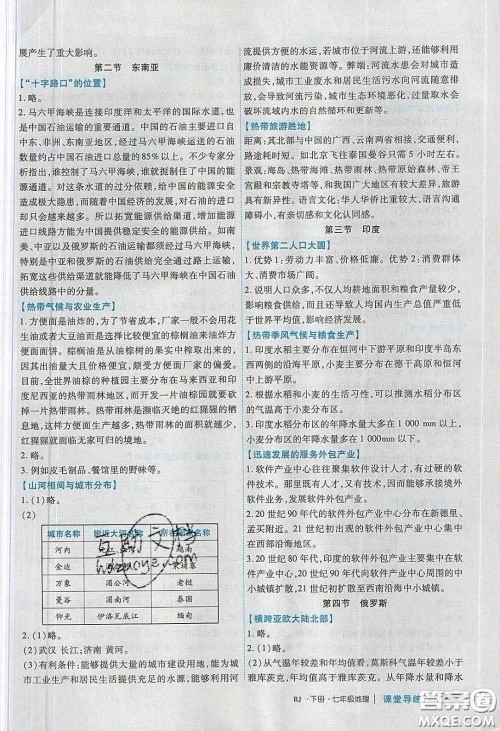 展产生了重大影响。
第二节 东南亚
【“十字路口”的位置】
1. 略。
2. 马六甲海峡是连接印度洋和太平洋的国际水道,也
是中国石油运输的重要通道。中国石油主要进口自
中东、非洲、东南亚地区,经过马六甲海峡运送的石油
数量约占中国石油进口总量的85%以上。不少专家
分析指出,谁控制了马六甲海峡,谁就扼制住了中国的
能源通道。对这条水道的过分依赖,给中国的能源安全
造成很大问题,而随着中国经济的发展,对石油的进
口却只会越来越大。所以,拓宽能源供给渠道,增加能
源进口方式也就为中国提供稳定的能源安全。如南
美、中亚以及俄罗斯的石油运输都须经过马六甲海峡,
特别是中亚和俄罗斯的石油供给完全通过陆上运输,
拓宽这些供给渠道就能降低了马六甲海峡在中国石油
供给线路中的分量。
【热带气候与农业生产】
1. 方便面是油炸的,为了节省成本,厂家一般不会用花
生油或者大豆油而是选择比较便宜的棕榈油来油炸方
便面面饼。棕榈油是从油棕树的果实中榨取出来的,
因其出油量大且价格低廉,颇受方便面厂家的偏爱。
目前,全世界油棕的种植园主要分布在马来西亚和印度
尼西亚的热带雨林地区,而开发一片油棕园就要砍
掉一片热带雨林。热带雨林是濒临灭绝的红猩猩的栖
息地,这样,方便面吃得越多,热带雨林就破坏越多,
红猩猩就面临无家可归的境地。
2. 略。
3. 例如皮毛制品、餐馆里的野味等。
【山河相间与城市分布】
1. (1)略。
(2)
城市名称
河内 越南
金边
万象 湄公河 老挝
曼谷 湄南河 泰国
仰光 伊洛瓦底江 缅甸
2. (1)略。
(2)武汉 长江;济南 黄河。
(3)有利条件:能够提供大量的城市建设用地,能为城
市工业生产和居民生活提供方便的水源,能够为城市物
流提供方便的水运,若城市位于河流上游,还能够利用
廉价清洁的水能资源等。弊端:河流也会对城市造
成损失,城市工业废水和居民生活污水向河流随意排
放,会导致河流污染,城市生态环境恶化,过量取水会
破坏流域内水的自然循环和更新等。
【热带旅游胜地】
距离:其北部与中国的广西、云南两省相接,交通便利,
路途耗时短。如北京飞往泰国曼谷只需5小时左右。
景观:海岛、热带海滩、热带雨林、热带原始森林、帝王
宫殿和宗教寺塔等,和我国广大地区有较大差异,旅游
具有新异性。语言文化:华人华侨比重较大,语言沟通
障碍小,有亲切感和文化认同感。
第三节 印度
【世界第二人口大国】
1. 优势:(1)劳动力丰富,价格低廉。优势(2)消费群体
大、消费市场广阔。
2. 说明人口众多,不仅人均耕地面积和粮食产量较少,
影响粮食供给,而且还导致人均国内生产总值严重低
于世界平均值,影响经济发展。
【热带季风气候与粮食生产】
1. 印度水稻主要分布在恒河中下游平原和印度半岛东
西两侧的沿海平原,小麦主要分布在德干高原和恒河
中上游平原。
2. 根据水稻和小麦的生活习性,可以推测水稻分布区
的气温高于小麦分布区。
3. 印度水稻分布区的年降水量大多在1 000 mm以上,
小麦分布区的年降水量多在1 000 mm以下。
【迅速发展的服务外包产业】
1. 软件产业中心往往聚集软件设计人才,有过硬的软
件技术。那里既有人才,又有技术,因而便于承接境外软
件业务,发展软件外包产业。
2. 20世纪90年代的软件外包产业中心分布在新德里、
孟买附近。21世纪初出现的软件外包产业中心集中
在西部沿海地区。
3. 20世纪80年代,印度的软件外包产业主要集中在班
加罗尔。20世纪90年代向软件产业中心城市周围的中
小城镇扩散,21世纪初扩散至西南沿海中小城镇。
第四节 俄罗斯
【横跨亚欧大陆北部】
1. (1)略。
(2)从气温年较差和年均值看,莫斯科气温年较差小于
雅库茨克,年均值大于雅库茨克。从年降水量和降水
RJ·下册·七年级地理 课堂导练
MXQE.COM